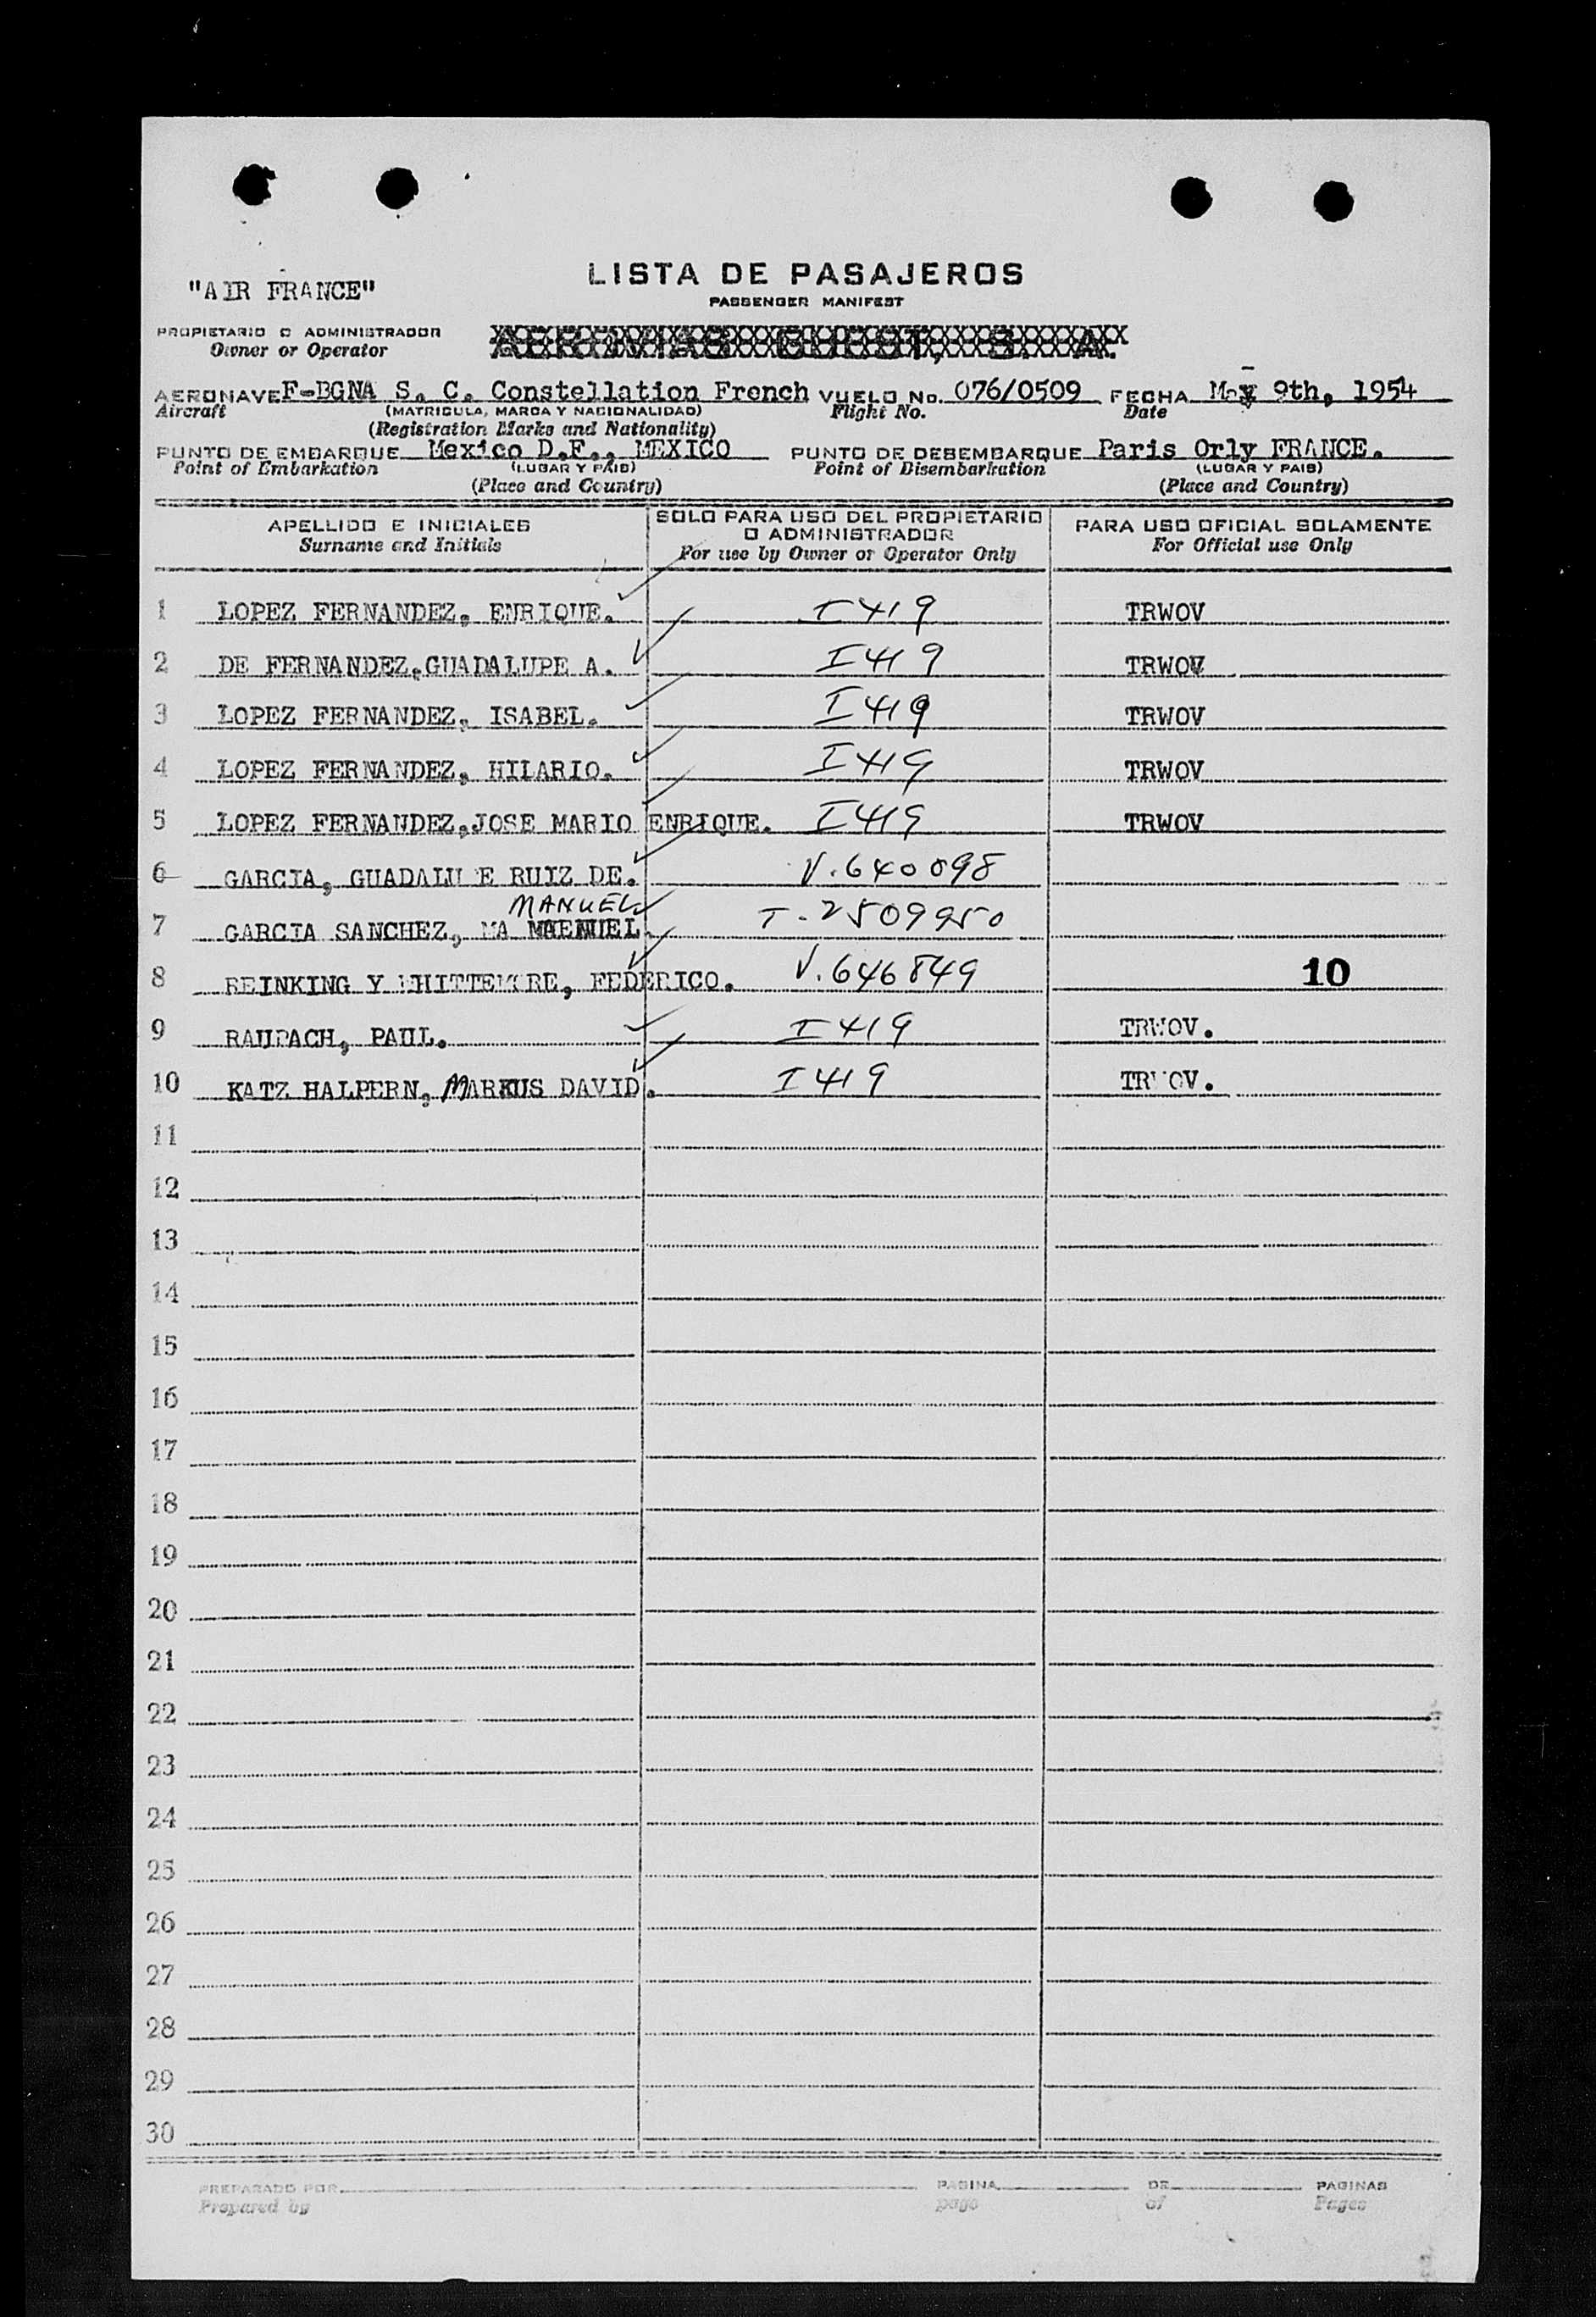 LISTA DE PASAJEROS
"AIR FRANCE"
PASSENGER MANIFEST
PROPIETARIO O ADMINISTRADOR
Owner or Operator
AEROVIAS GUEST, S. A.
AERONAVE F-BGNA S. C. Constellation French VUELO No. 076/0509 FECHA May 9th, 1954
Aircraft (MATRICULA, MARCA Y NACIONALIDAD) Flight No. Date
(Registration Marks and Nationality)
PUNTO DE EMBARQUE Mexico D.F., MEXICO PUNTO DE DESEMBARQUE Paris Orly FRANCE.
Point of Embarkation (LUGAR Y PAIS) Point of Disembarkation (LUGAR Y PAIS)
(Place and Country) (Place and Country)
APELLIDO E INICIALES SOLO PARA USO DEL PROPIETARIO O ADMINISTRADOR PARA USO OFICIAL SOLAMENTE
Surname and Initials For use by Owner or Operator Only For Official use Only
1 LOPEZ FERNANDEZ, ENRIQUE. I419 TRWOV
2 DE FERNANDEZ,GUADALUPE A. I419 TRWOV
3 LOPEZ FERNANDEZ, ISABEL. I419 TRWOV
4 LOPEZ FERNANDEZ, HILARIO. I419 TRWOV
5 LOPEZ FERNANDEZ,JOSE MARIO ENRIQUE. I419 TRWOV
6 GARCIA, GUADALU E RUIZ DE. V.640098
MANUEL
7 GARCIA SANCHEZ, MA T-2509950
8 REINKING Y FEDERICO. V.646849 10
9 RAUPACH, PAUL. I419 TRWOV.
10 KATZ HALPERN, MARKUS DAVID. I419 TRWOV.
11
12
13
14
15
16
17
18
19
20
21
22
23
24
25
26
27
28
29
30
PREPARADO POR PAGINA DE PAGINAS
Prepared by page of Pages